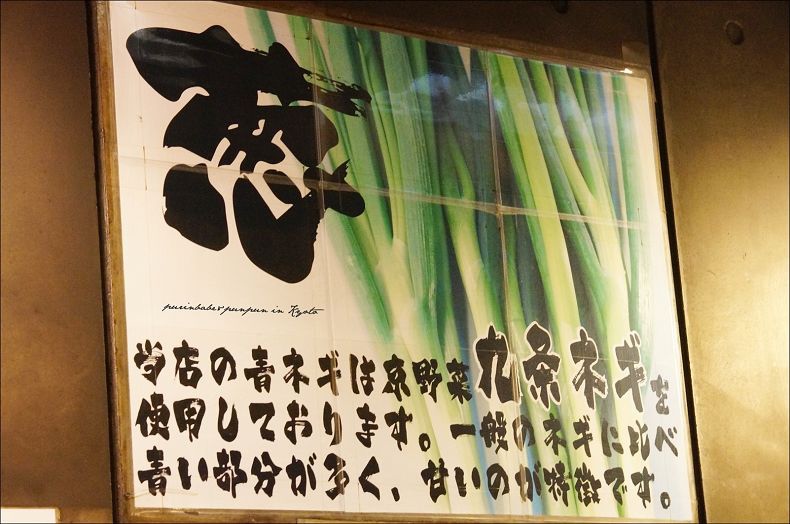 葱
purinbabe&punpun in Kyoto
当店の青ネギは京野菜九条ネギを
使用しております。一般のネギに比べ
青い部分が多く、甘いのが特徴です。